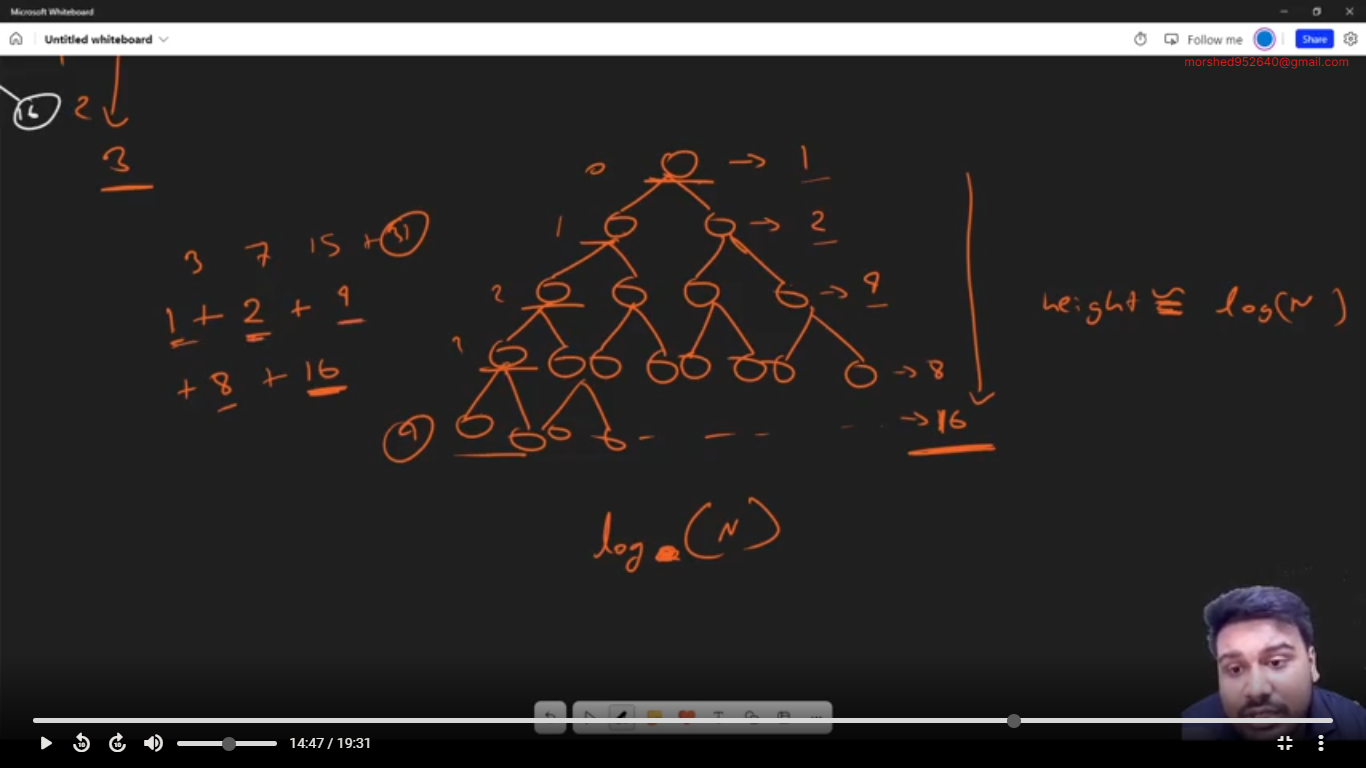 Microsoft Whiteboard
Untitled whiteboard
Follow me
Share
morshed952640@gmail.com
16
2
3
0
→ 1
1
→ 2
3 7 15 + 31
1 + 2 + 4
2
→ 4
height ≅ log(N)
+ 8 + 16
→ 8
4
→ 16
log (N)
14:47 / 19:31